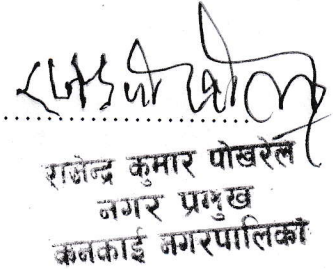 राजेन्द्र कुमार पोखरेल
नगर प्रमुख
कनकाई नगरपालिका